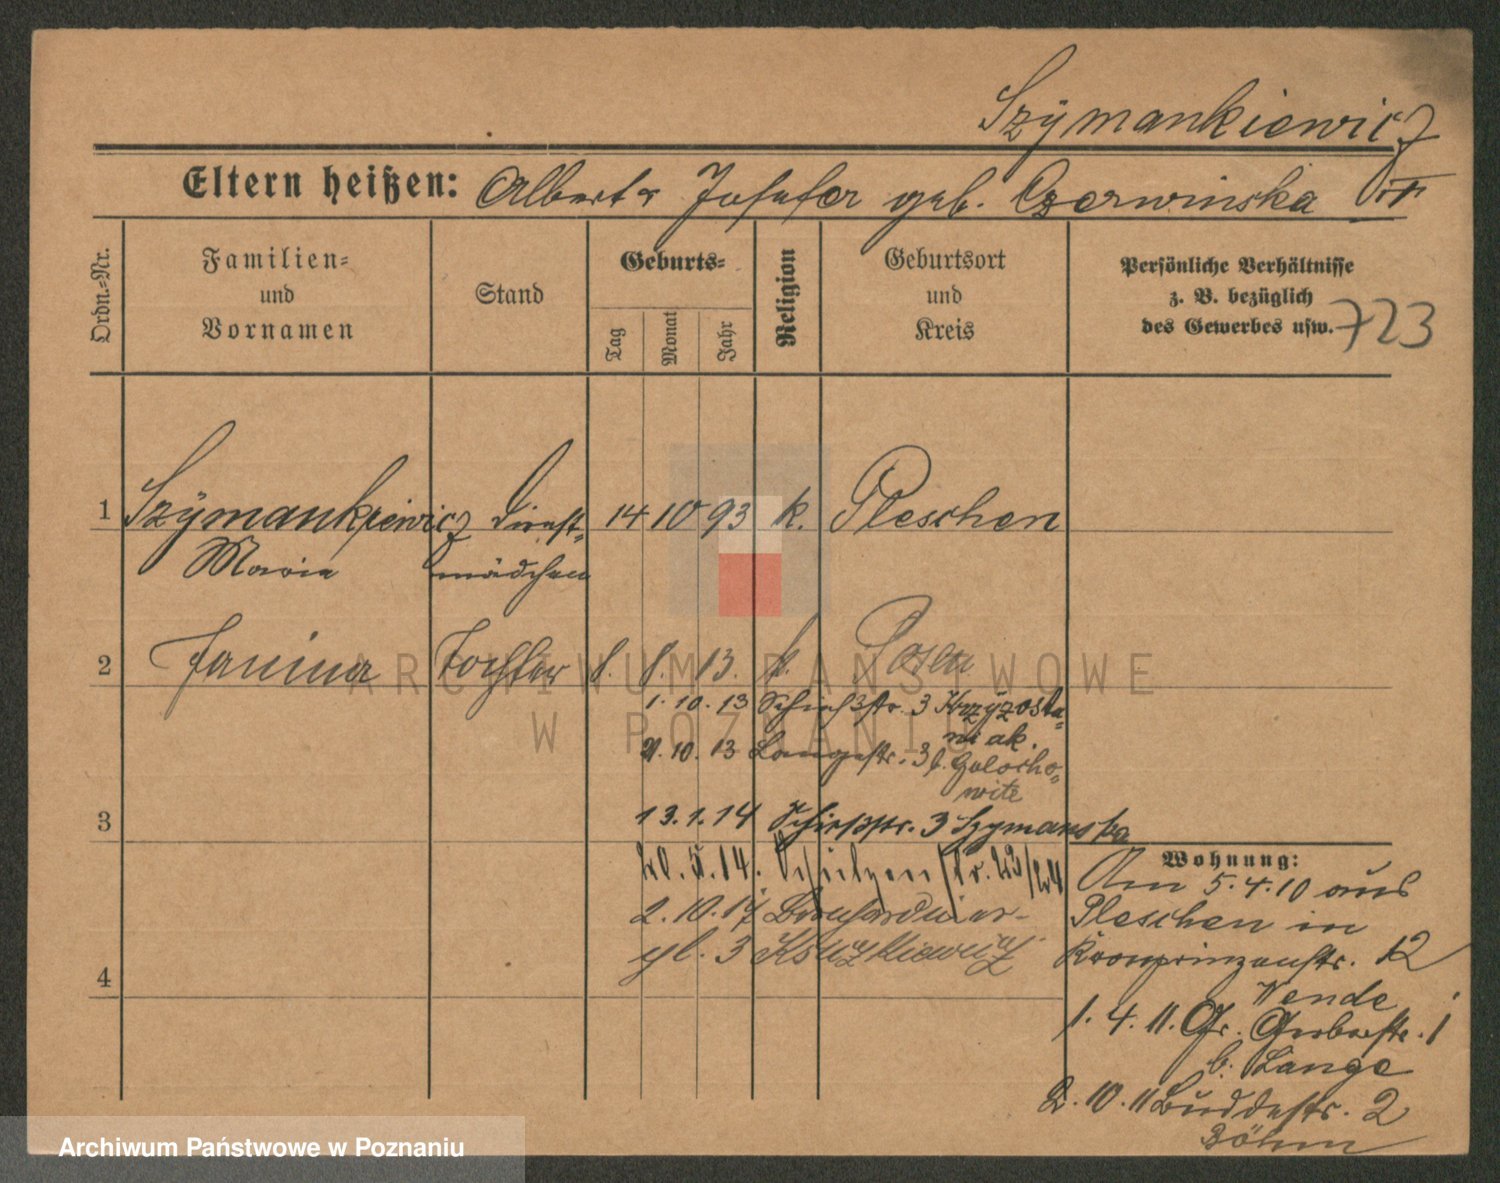 Szymankiewicz
Eltern heißen: Albert u Josefa geb. Czerwinska
Ordn.=Nr.
Familien=
und
Vornamen
Stand
Geburts=
Tag
Monat
Jahr
Religion
Geburtsort
und
Kreis
Persönliche Verhältnisse
z. B. bezüglich
des Gewerbes usw.
723
1 Szymankiewicz Dienst= 14 10 93 k. Pleschen
Maria mädchen
2 Janina Tochter 8. 8. 13. k. Posen
1.10.13 Schießstr. 3 Krzyzosta=
niak.
21.10.13 Langestr. 3 b.
3 13.1.14 Schießstr. 3 Szymanska
20.5.14. Schützenstr. 23/24
2.10.17 Bernhardiner-
pl. 3
4
Wohnung:
Am 5.4.10 aus
Pleschen in
Kronprinzenstr. 12
Wende
1.4.11. Gr. Gerberstr. 1
b. Lange
2.10.11 Buddestr. 2
Böhm
ARCHIWUM PAŃSTWOWE
W POZNANIU
Archiwum Państwowe w Poznaniu